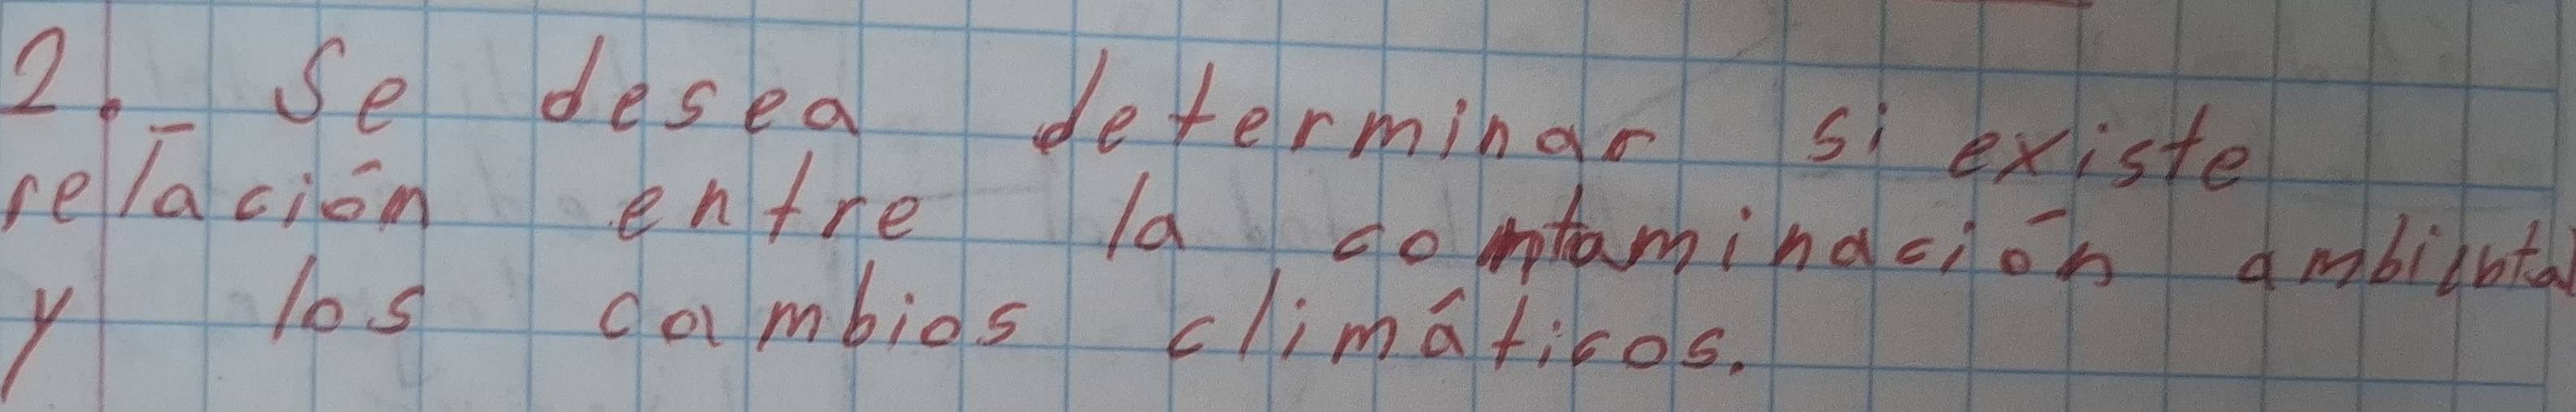 2. Se desea determinar si existe
relación entre la contaminación ambiental
y los cambios climáticos.